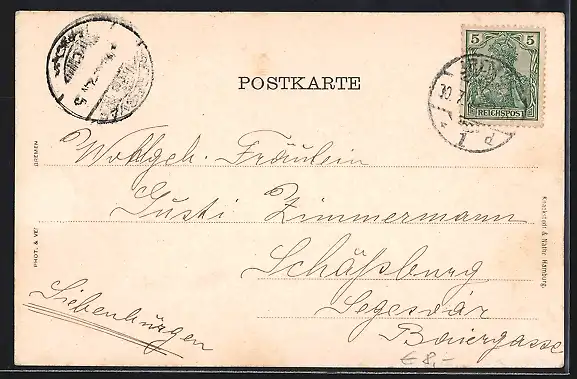 5 5
REICHSPOST
POSTKARTE
Wohlgeb. Fräulein
Gusti Zimmermann
Schäßburg
Segesvár
Baiergasse
Siebenbürgen
€ 8,-
BREMEN
PHOT. & VE
Knackstedt & Näther Hamburg.